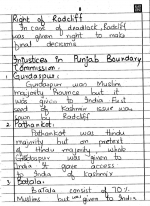 Right of Radcliff
In case of deadlock, Radcliff
was given right to make
final decisions
Injustices in Punjab Boundary
Commission:
1. Gurdaspur:
Gurdaspur was Muslim
majority Province but it
was given to India First
seed of Kashmir issue was
sown by Radcliff
2. Pathankot:
Pathankot was Hindu
majority but on pretext
of Hindu majority whole
Gurdaspur was given to
India It gave access
to India of Kashmir
3. Batala:
Batala consist of 70%
Muslims but was given to India